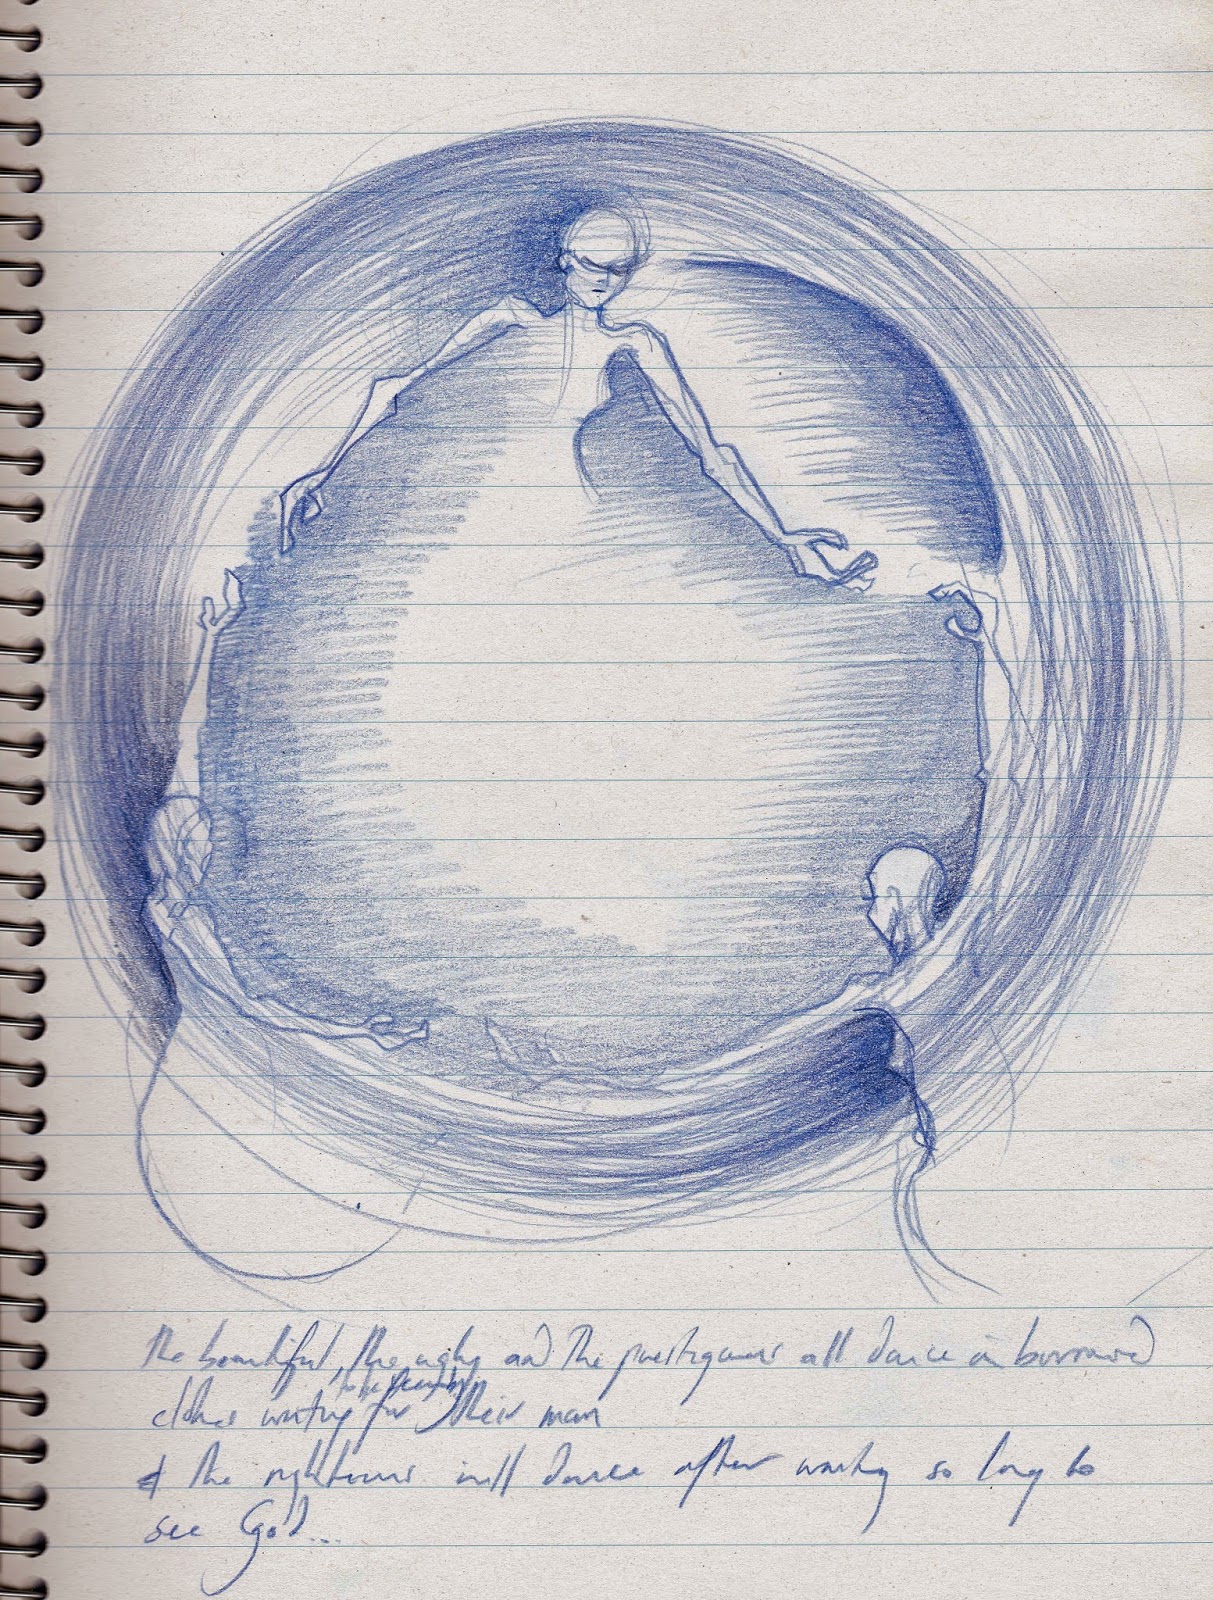 The beautiful, the ugly and the all dance in borrowed
clothes waiting for their man
& the righteous will dance after waiting so long to
see God...